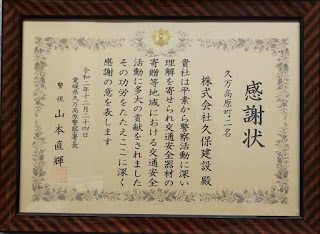 感謝状
久万高原町二名
株式会社久保建設 殿
貴社は平素から警察活動に深い
理解を寄せられ交通安全器材の
寄贈等地域における交通安全
活動に多大の貢献をされました
その功労をたたえここに深く
感謝の意を表します
令和二年十二月二十四日
愛媛県久万高原警察署長
警視 山本直輝